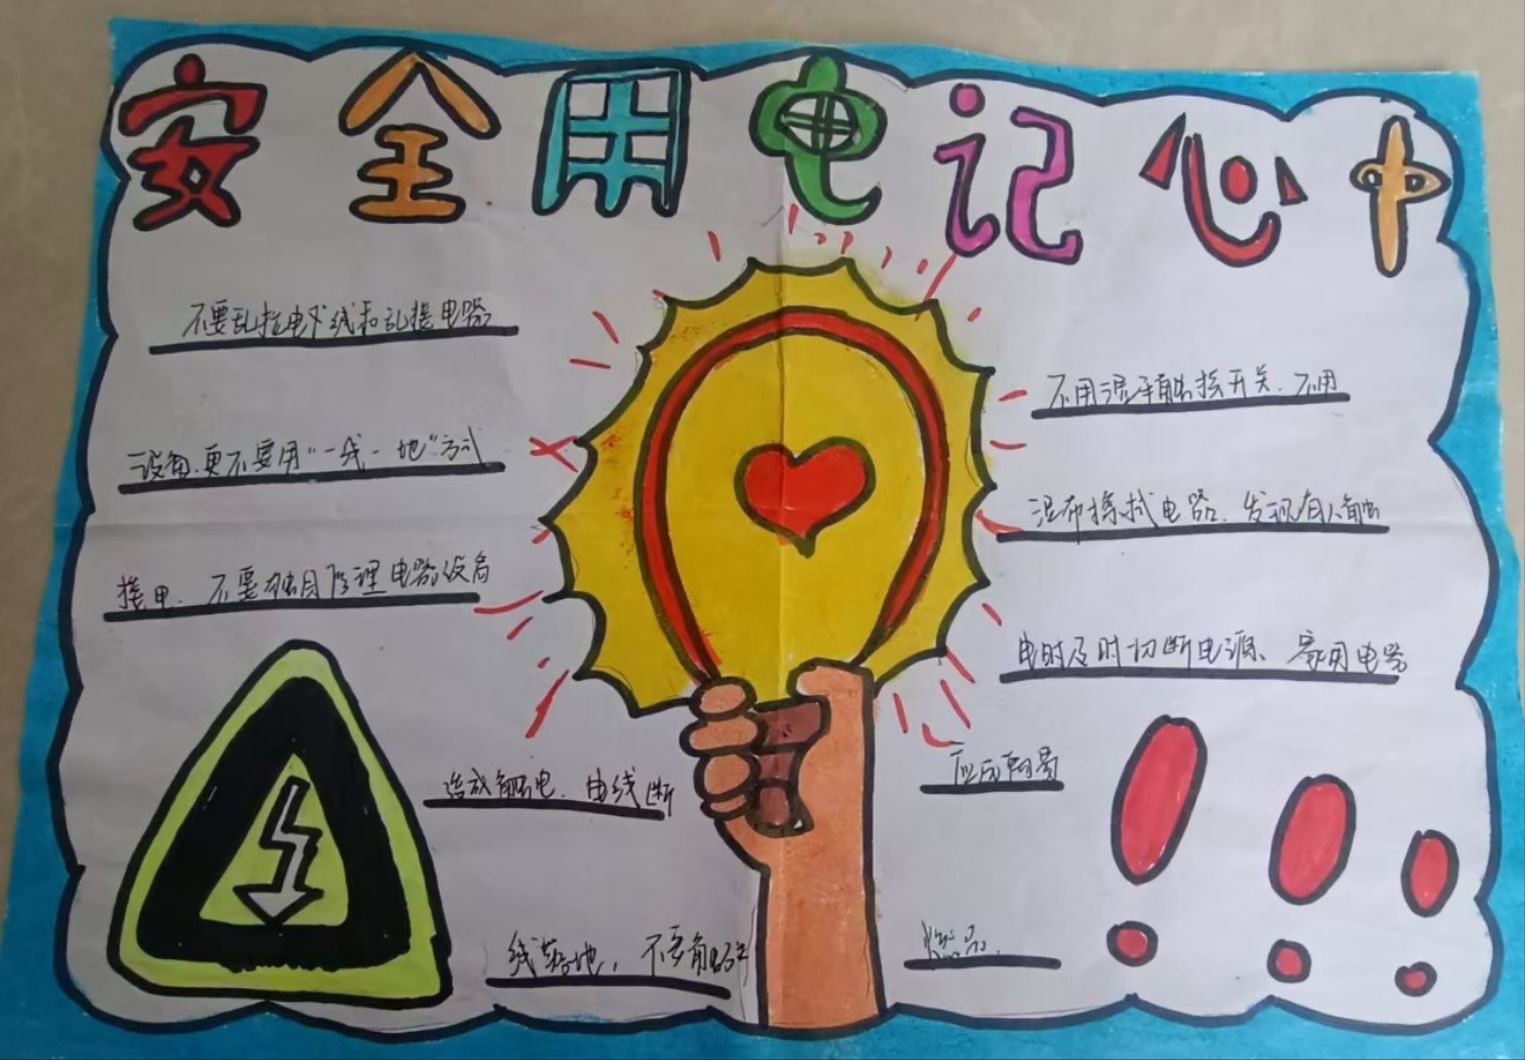 安全用电记心中
不要乱拉电线和乱接电器
设备.更不要用“一线一地”方式
接电.不要独自修理电器设备
造成触电.电线断
线落地,不要触碰
不用湿手触摸开关.不用
湿布擦拭电器.发现有人触
电时及时切断电源、家用电器
应远离易
燃品.